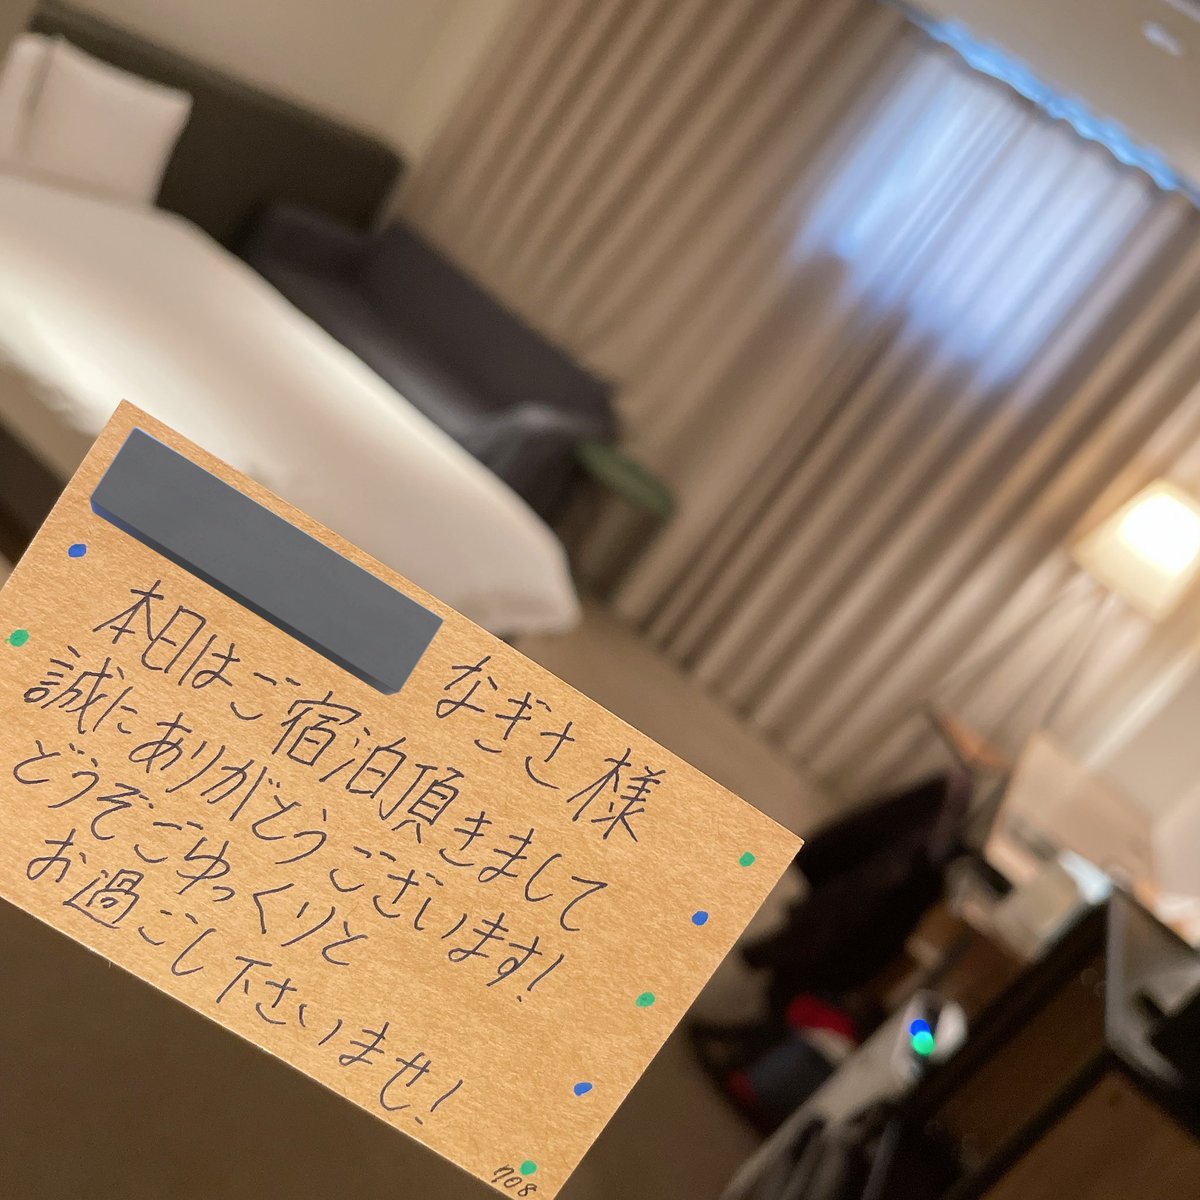 なぎさ様
本日はご宿泊頂きまして
誠にありがとうございます!
どうぞごゆっくりと
お過ごし下さいませ!
708